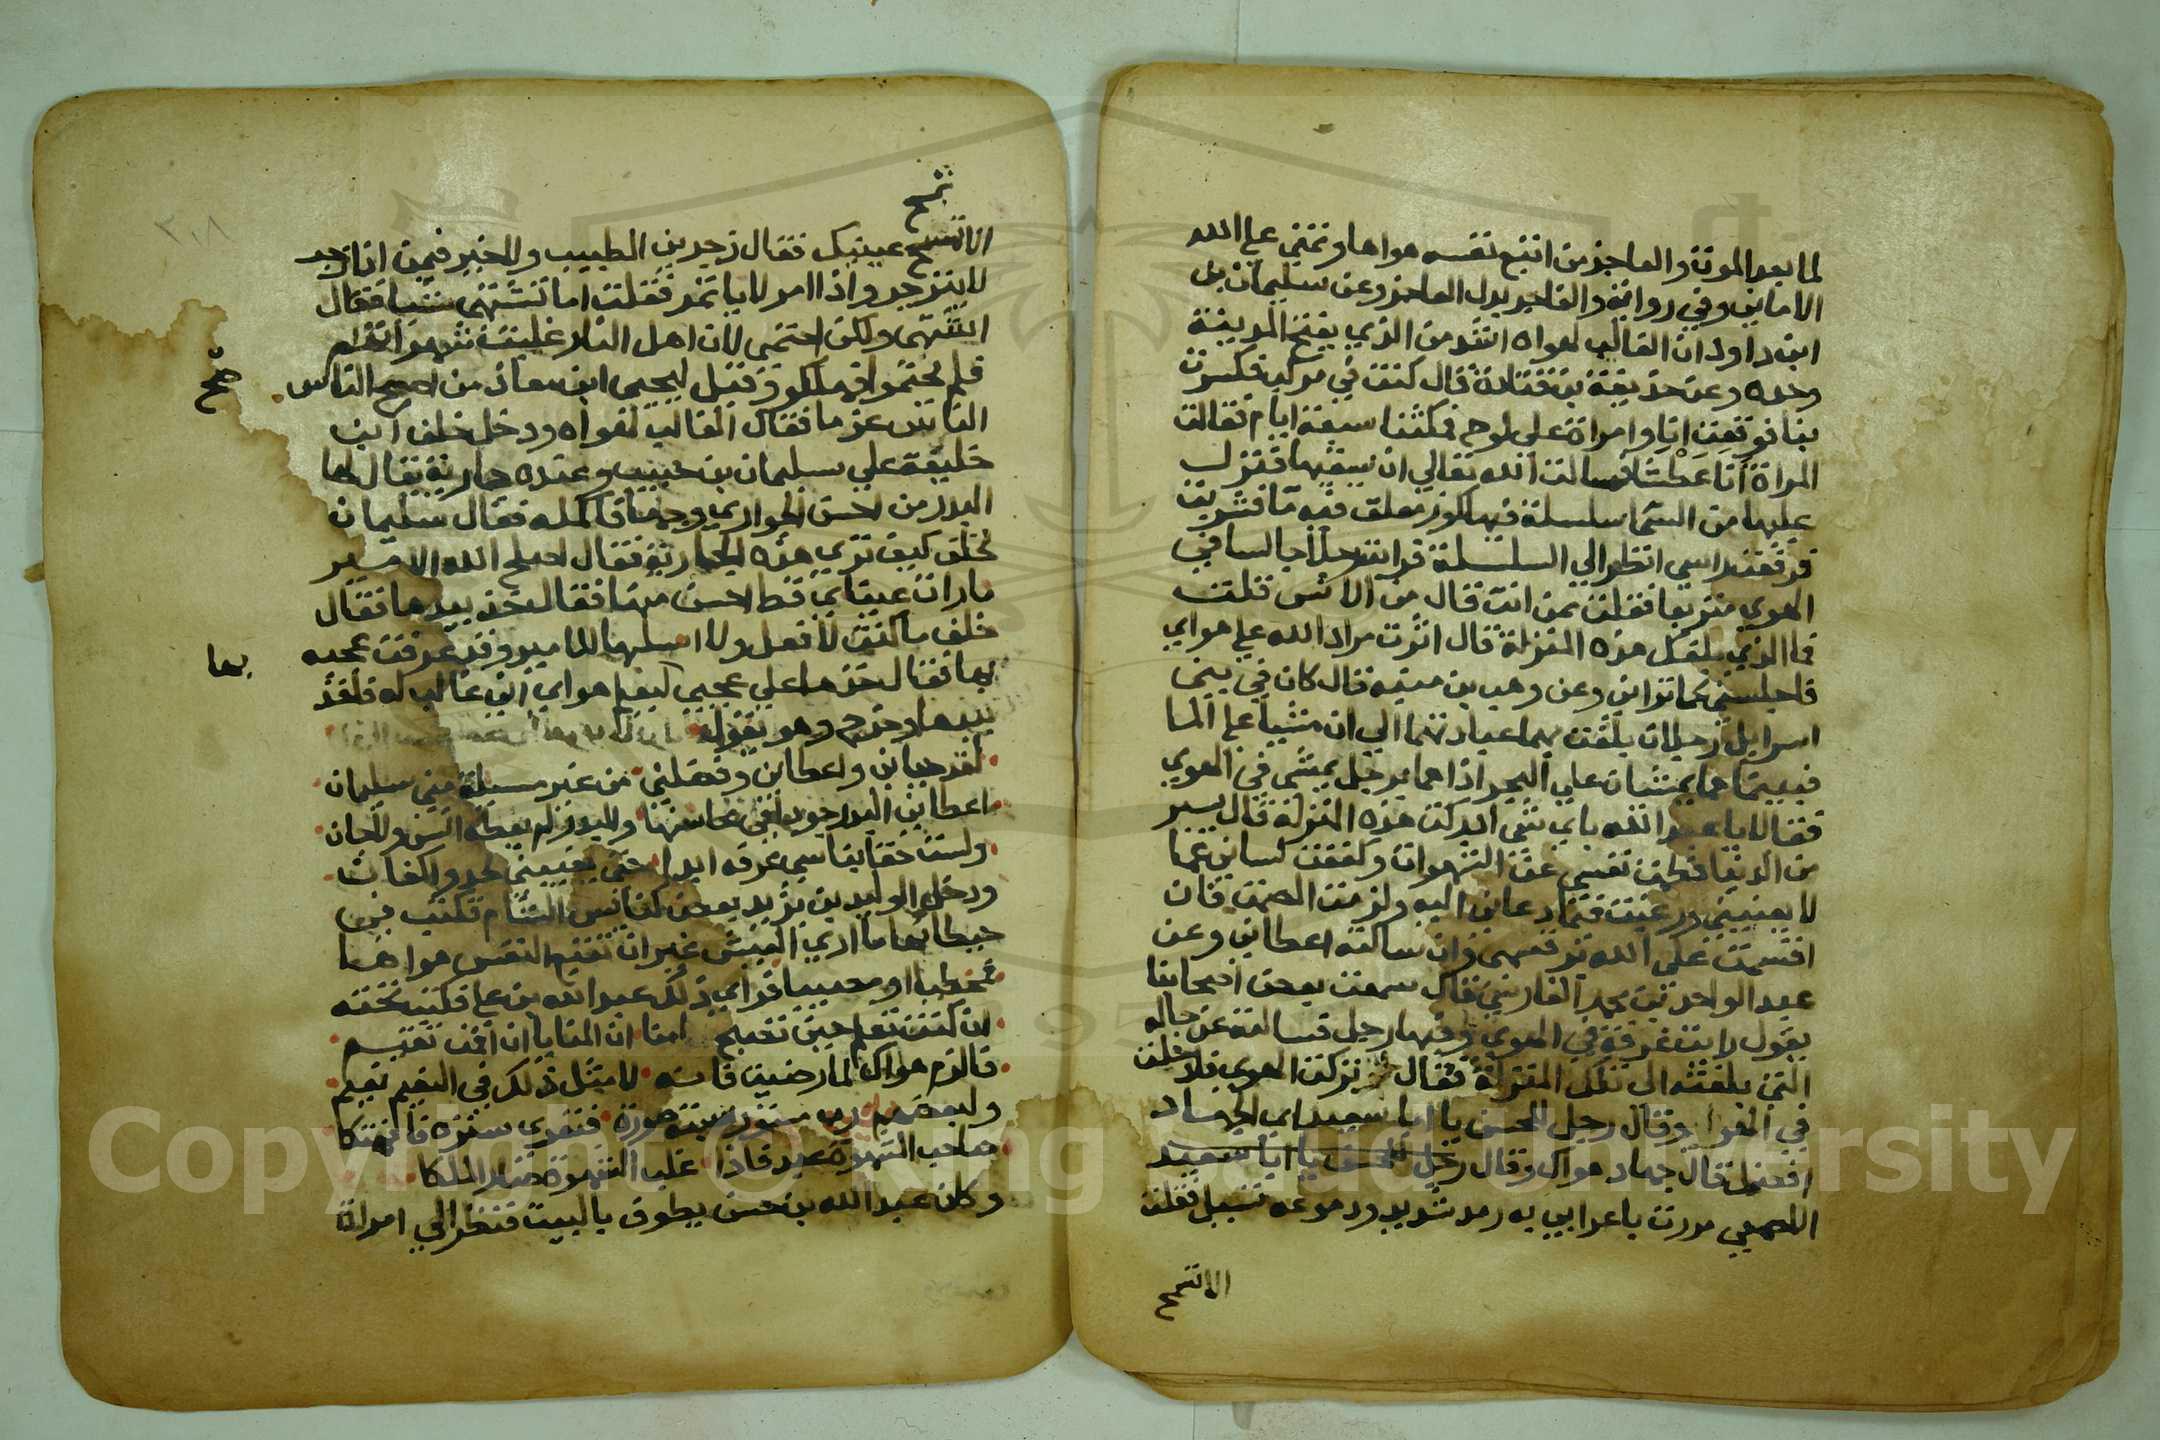 لما بعد الموت والعاجز من اتبع نفسه هواها وتمني علي الله
الاماني وفي رواية والفاجر بدل العاجز وعن سليمان بن
ابن داود ان الغالب لهواه اشد من الذي يفتح المدينة
وحده وعن حذيفة بن قتادة قال كنت في مركب فكسرت
بنا فوقعت انا وامراة علي لوح فمكثنا سبعة ايام فقالت
المراة انا عطشا فسالت الله تعالي ان يسقيها فنزلت
عليها من السما سلسلة فيها كوز معلق فيه ما فشربت
فرفعت راسي انظر الي السلسلة فرايت رجلا جالسا في
الهوي متربعا فقلت ممن انت قال من الانس قلت
فما الذي بلغك هذه المنزلة قال اثرت مراد الله علي هواي
فاجلسني كما تراني وعن وهب بن منبه قال كان في بني
اسرايل رجلان بلغت بهما عبادتهما الي ان مشيا علي الما
فبينما هما يمشيان علي البحر اذا هما برجل يمشي في الهوي
فقالا يا عبد الله باي شي ادركت هذه المنزلة قال بيسير
من الدنيا فطمت نفسي عن الشهوات وكففت لساني عما
لا يعنيني ورغبت فيما دعاني اليه ولزمت الصمت فان
اقسمت علي الله بر قسمي وان سالته اعطاني وعن
عبد الواحد بن محمد الفارسي قال سمعت بعض اصحابنا
يقول رايت غرفة في الهوي وفيها رجل فسالته عن حاله
التي بلغته الي تلك المنزلة فقال تركت الهوي فادخلت
في الهوا وقال رجل للحسن يا ابا سعيد اي الجهاد
افضل قال جهاد هواك وقال رجل للحسن يا ابا سعيد
الاصمعي مررت باعرابي به رمد شديد ودموعه تسيل فقلت
الا تمسح
تمسح
٣٠٨
الا تمسح عينيك فقال زجرني الطبيب ولا خير فيمن اذا زجر
لا ينزجر واذا امر لا ياتمر فقلت اما تشتهي شيا فقال
اشتهي ولكن احتمي لان اهل النار غلبت شهوتهم
فلم يحتموا فهلكوا وقيل ليحيي ابن معاذ من اصح الناس
صح
الناس عزما فقال الغالب لهواه ودخل خلف ابن
خليفة علي سليمان بن حبيب وعنده جارية يقال لها
البدر من احسن الجواري وجها واكمله فقال سليمان
لخلف كيف تري هذه الجارية فقال اصلح الله الامير
ما رات عيناي قط احسن منها فقال خذ بيدها فقال
خلف ما كنت لافعل ولا اسلبها للامير وقد عرفت عجبه
بها
بها فقال خذها علي عجبي ليعلم هواي اني غالب له فاخذ
بيدها وخرج وهو يقول
لقد حباني واعطاني وفضلني من غير مسيلة مني سليمان
اعطاني البدر جودا في محاسنها والبدر لم يعطه انس ولا جان
ولست حقا بناسي عرفه ابدا حتي يغيبني لحد واكفان
ودخل الوليد بن يزيد بعض كنايس الشام فكتب في
حيطانها ما اري العيش غير ان تتبع النفس هواها
فمخطيا او مصيبا فراي ذلك عبد الله بن علي فكتب تحته
ان كنت تعلم حين تصبح امنا ان المنايا ان اقمت تقيم
فالزم هواك لما رضيت فانه لا مثل ذلك في النعيم نعيم
ولبعضهم رب مستور سبته صورة فتعري ستره فانهتكا
صاحب الشهوة عبد فاذا غلب الشهوة صار الملكا
وكان عبد الله بن حسن يطوف بالبيت فنظر الي امراة
Copyright © King Saud University